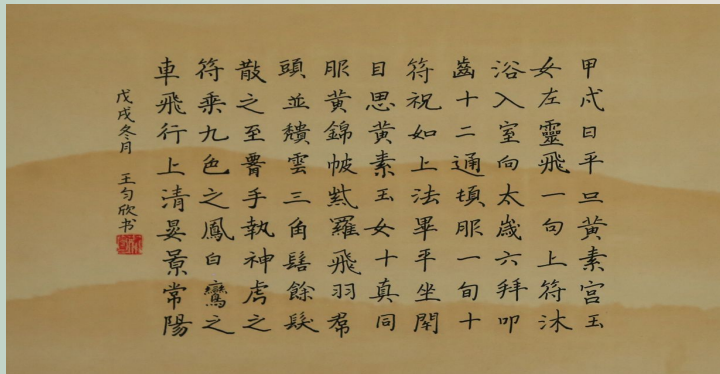 甲戌日平旦黃素宮玉
女左靈飛一旬上符沐
浴入室向太歲六拜叩
齒十二通頓服一旬十
符祝如上法畢平坐閉
目思黃素玉女十真同
服黃錦帔紫羅飛羽帬
頭並頹雲三角髻餘髮
散之至腰手執神虎之
符乘九色之鳳白鸞之
車飛行上清晏景常陽
戊戌冬月 王勻欣书